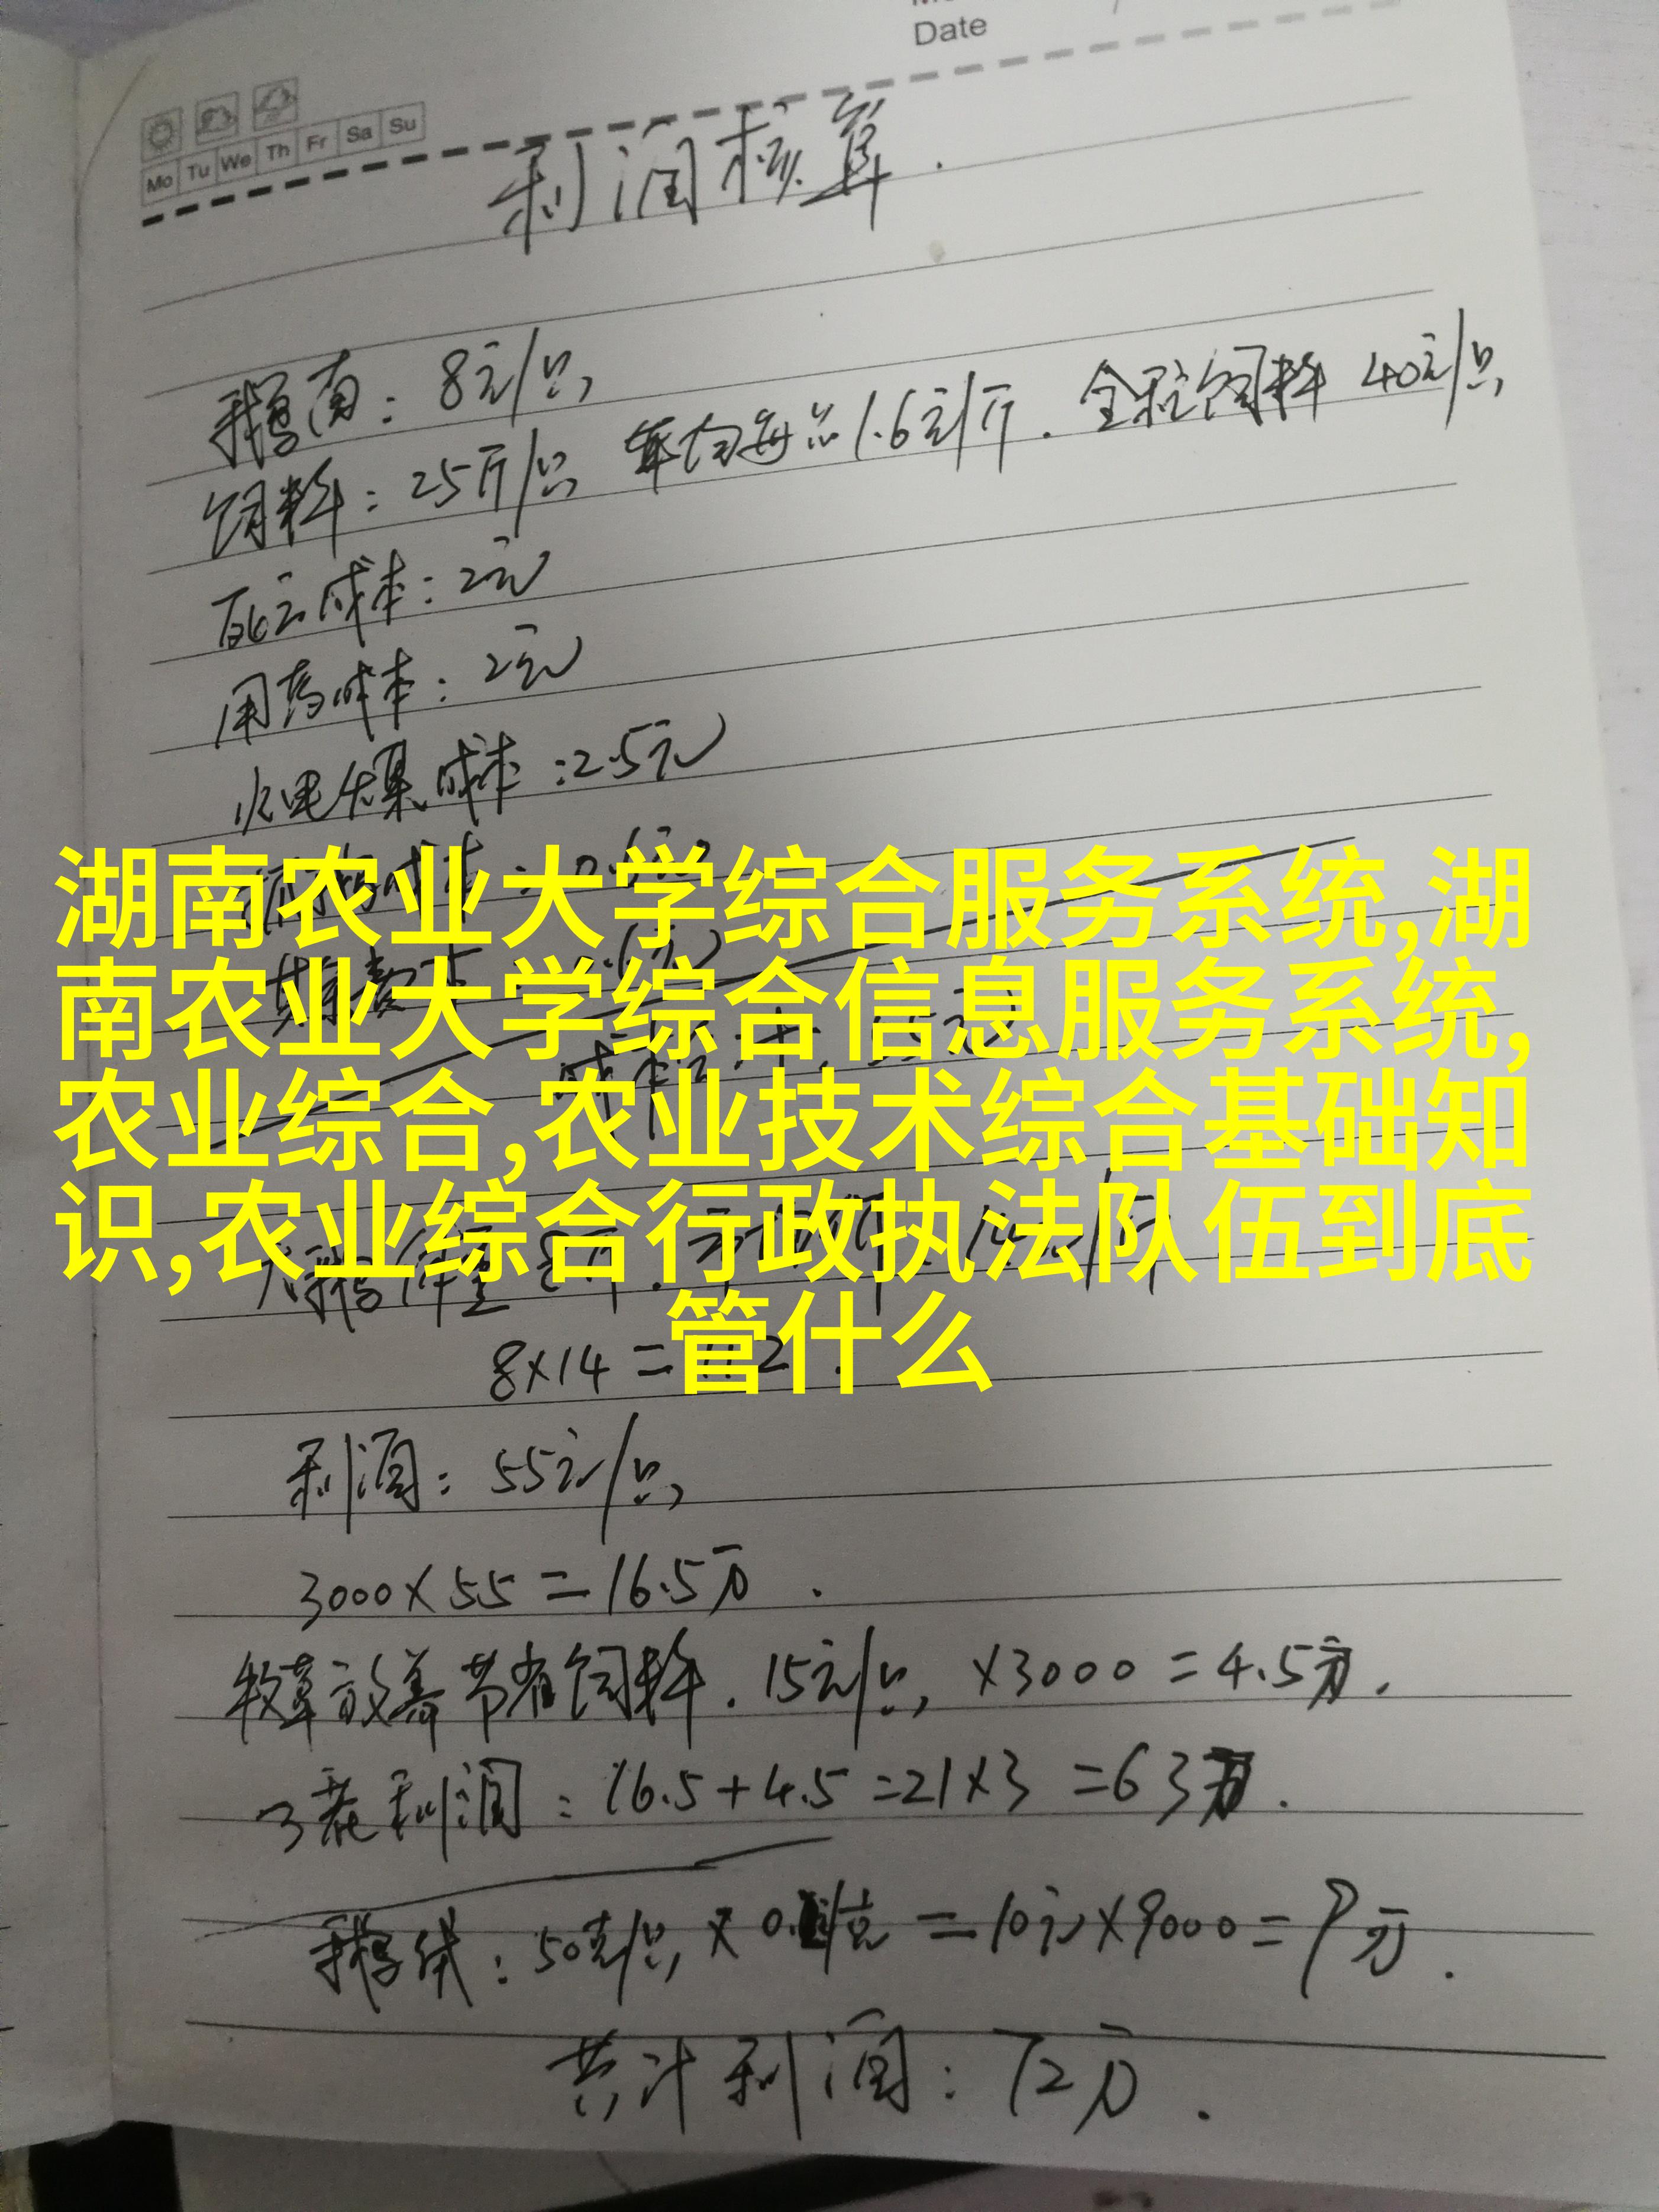 Date
Mo Tu We Th Fr Sa Su
利润核算.
鹅苗: 8元/只
饲料: 25斤/只 平均每斤1.6元/斤. 全程饲料 40元/只
死亡成本: 2元
用药成本: 2元
水电煤成本: 2.5元
湖南农业大学综合服务系统,湖
南农业大学综合信息服务系统,
农业综合,农业技术综合基础知
识,农业综合行政执法队伍到底
管什么
大鹅体重 8斤.
8×14=112.
利润: 55元/只
3000×55=16.5万.
牧草放养节省饲料. 15元/只 ×3000=4.5万.
3茬利润: 16.5+4.5=21×3=63万.
鹅绒: 50克/只 × /克=10元×9000=9万.
共计利润: 72万.